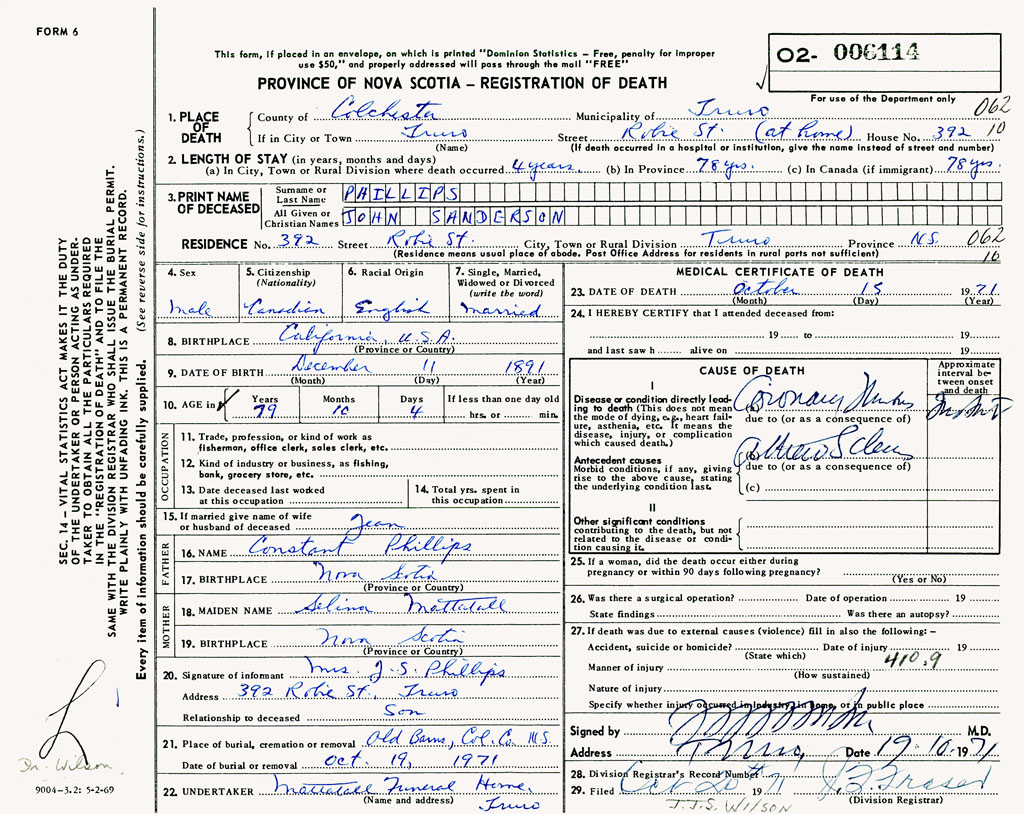 FORM 6
This form, if placed in an envelope, on which is printed "Dominion Statistics – Free, penalty for improper
use $50," and properly addressed will pass through the mail "FREE"
O2- 006114
PROVINCE OF NOVA SCOTIA – REGISTRATION OF DEATH
For use of the Department only
062
10
1. PLACE OF DEATH
County of Colchester Municipality of Truro
If in City or Town Truro Street Robie St. (at home) House No. 392
(Name) (If death occurred in a hospital or institution, give the name instead of street and number)
2. LENGTH OF STAY (in years, months and days)
(a) In City, Town or Rural Division where death occurred 4 years. (b) In Province 78 yrs. (c) In Canada (if immigrant) 78 yrs.
3. PRINT NAME OF DECEASED
Surname or Last Name PHILLIPS
All Given or Christian Names JOHN SANDERSON
RESIDENCE No. 392 Street Robie St. City, Town or Rural Division Truro Province N.S. 062
(Residence means usual place of abode. Post Office Address for residents in rural parts not sufficient) 10
4. Sex
Male
5. Citizenship
(Nationality)
Canadian
6. Racial Origin
English
7. Single, Married,
Widowed or Divorced
(write the word)
Married
8. BIRTHPLACE California, U.S.A.
(Province or Country)
9. DATE OF BIRTH December 11 1891
(Month) (Day) (Year)
10. AGE in Years Months Days If less than one day old
79 10 4 hrs. or min.
OCCUPATION
11. Trade, profession, or kind of work as
fishermen, office clerk, sales clerk, etc.
12. Kind of industry or business, as fishing,
bank, grocery store, etc.
13. Date deceased last worked
at this occupation
14. Total yrs. spent in
this occupation
15. If married give name of wife
or husband of deceased Jean
FATHER
16. NAME Constant Phillips
17. BIRTHPLACE Nova Scotia
(Province or Country)
MOTHER
18. MAIDEN NAME Selina Mattatall
19. BIRTHPLACE Nova Scotia
(Province or Country)
20. Signature of informant Mrs. J.S. Phillips
Address 392 Robie St., Truro
Relationship to deceased Son
21. Place of burial, cremation or removal Old Barns, Col. Co. N.S.
Date of burial or removal Oct. 19, 1971
22. UNDERTAKER Mattatall Funeral Home,
(Name and address) Truro
MEDICAL CERTIFICATE OF DEATH
23. DATE OF DEATH October 15 1971
(Month) (Day) (Year)
24. I HEREBY CERTIFY that I attended deceased from:
19 to 19
and last saw h alive on 19
CAUSE OF DEATH
Approximate
interval be-
tween onset
and death
I
Disease or condition directly lead-
ing to death (This does not mean
the mode of dying, e.g., heart fail-
ure, asthenia, etc. It means the
disease, injury, or complication
which caused death.)
(a) Coronary
due to (or as a consequence of)
Antecedent causes
Morbid conditions, if any, giving
rise to the above cause, stating
the underlying condition last.
(b)
due to (or as a consequence of)
(c)
II
Other significant conditions
contributing to the death, but not
related to the disease or condi-
tion causing it.
25. If a woman, did the death occur either during
pregnancy or within 90 days following pregnancy?
(Yes or No)
26. Was there a surgical operation? Date of operation 19
State findings Was there an autopsy?
27. If death was due to external causes (violence) fill in also the following: –
Accident, suicide or homicide? Date of injury 19
(State which) 410.9
Manner of injury
(How sustained)
Nature of injury
Specify whether injury occurred in industry, in home, or in public place
Signed by M.D.
Address Truro, Date 19·10·1971
28. Division Registrar's Record Number
29. Filed Oct 20th 1971
(Division Registrar)
J.J.S. WILSON
SEC. 14 – VITAL STATISTICS ACT MAKES IT THE DUTY
OF THE UNDERTAKER OR PERSON ACTING AS UNDER-
TAKER TO OBTAIN ALL THE PARTICULARS REQUIRED
IN THE "REGISTRATION OF DEATH" AND TO FILE THE
SAME WITH THE DIVISION REGISTRAR WHO SHALL ISSUE THE BURIAL PERMIT.
WRITE PLAINLY WITH UNFADING INK. THIS IS A PERMANENT RECORD.
Every item of information should be carefully supplied. (See reverse side for instructions.)
Dr. Wilson
9004-3.2: 5-2-69